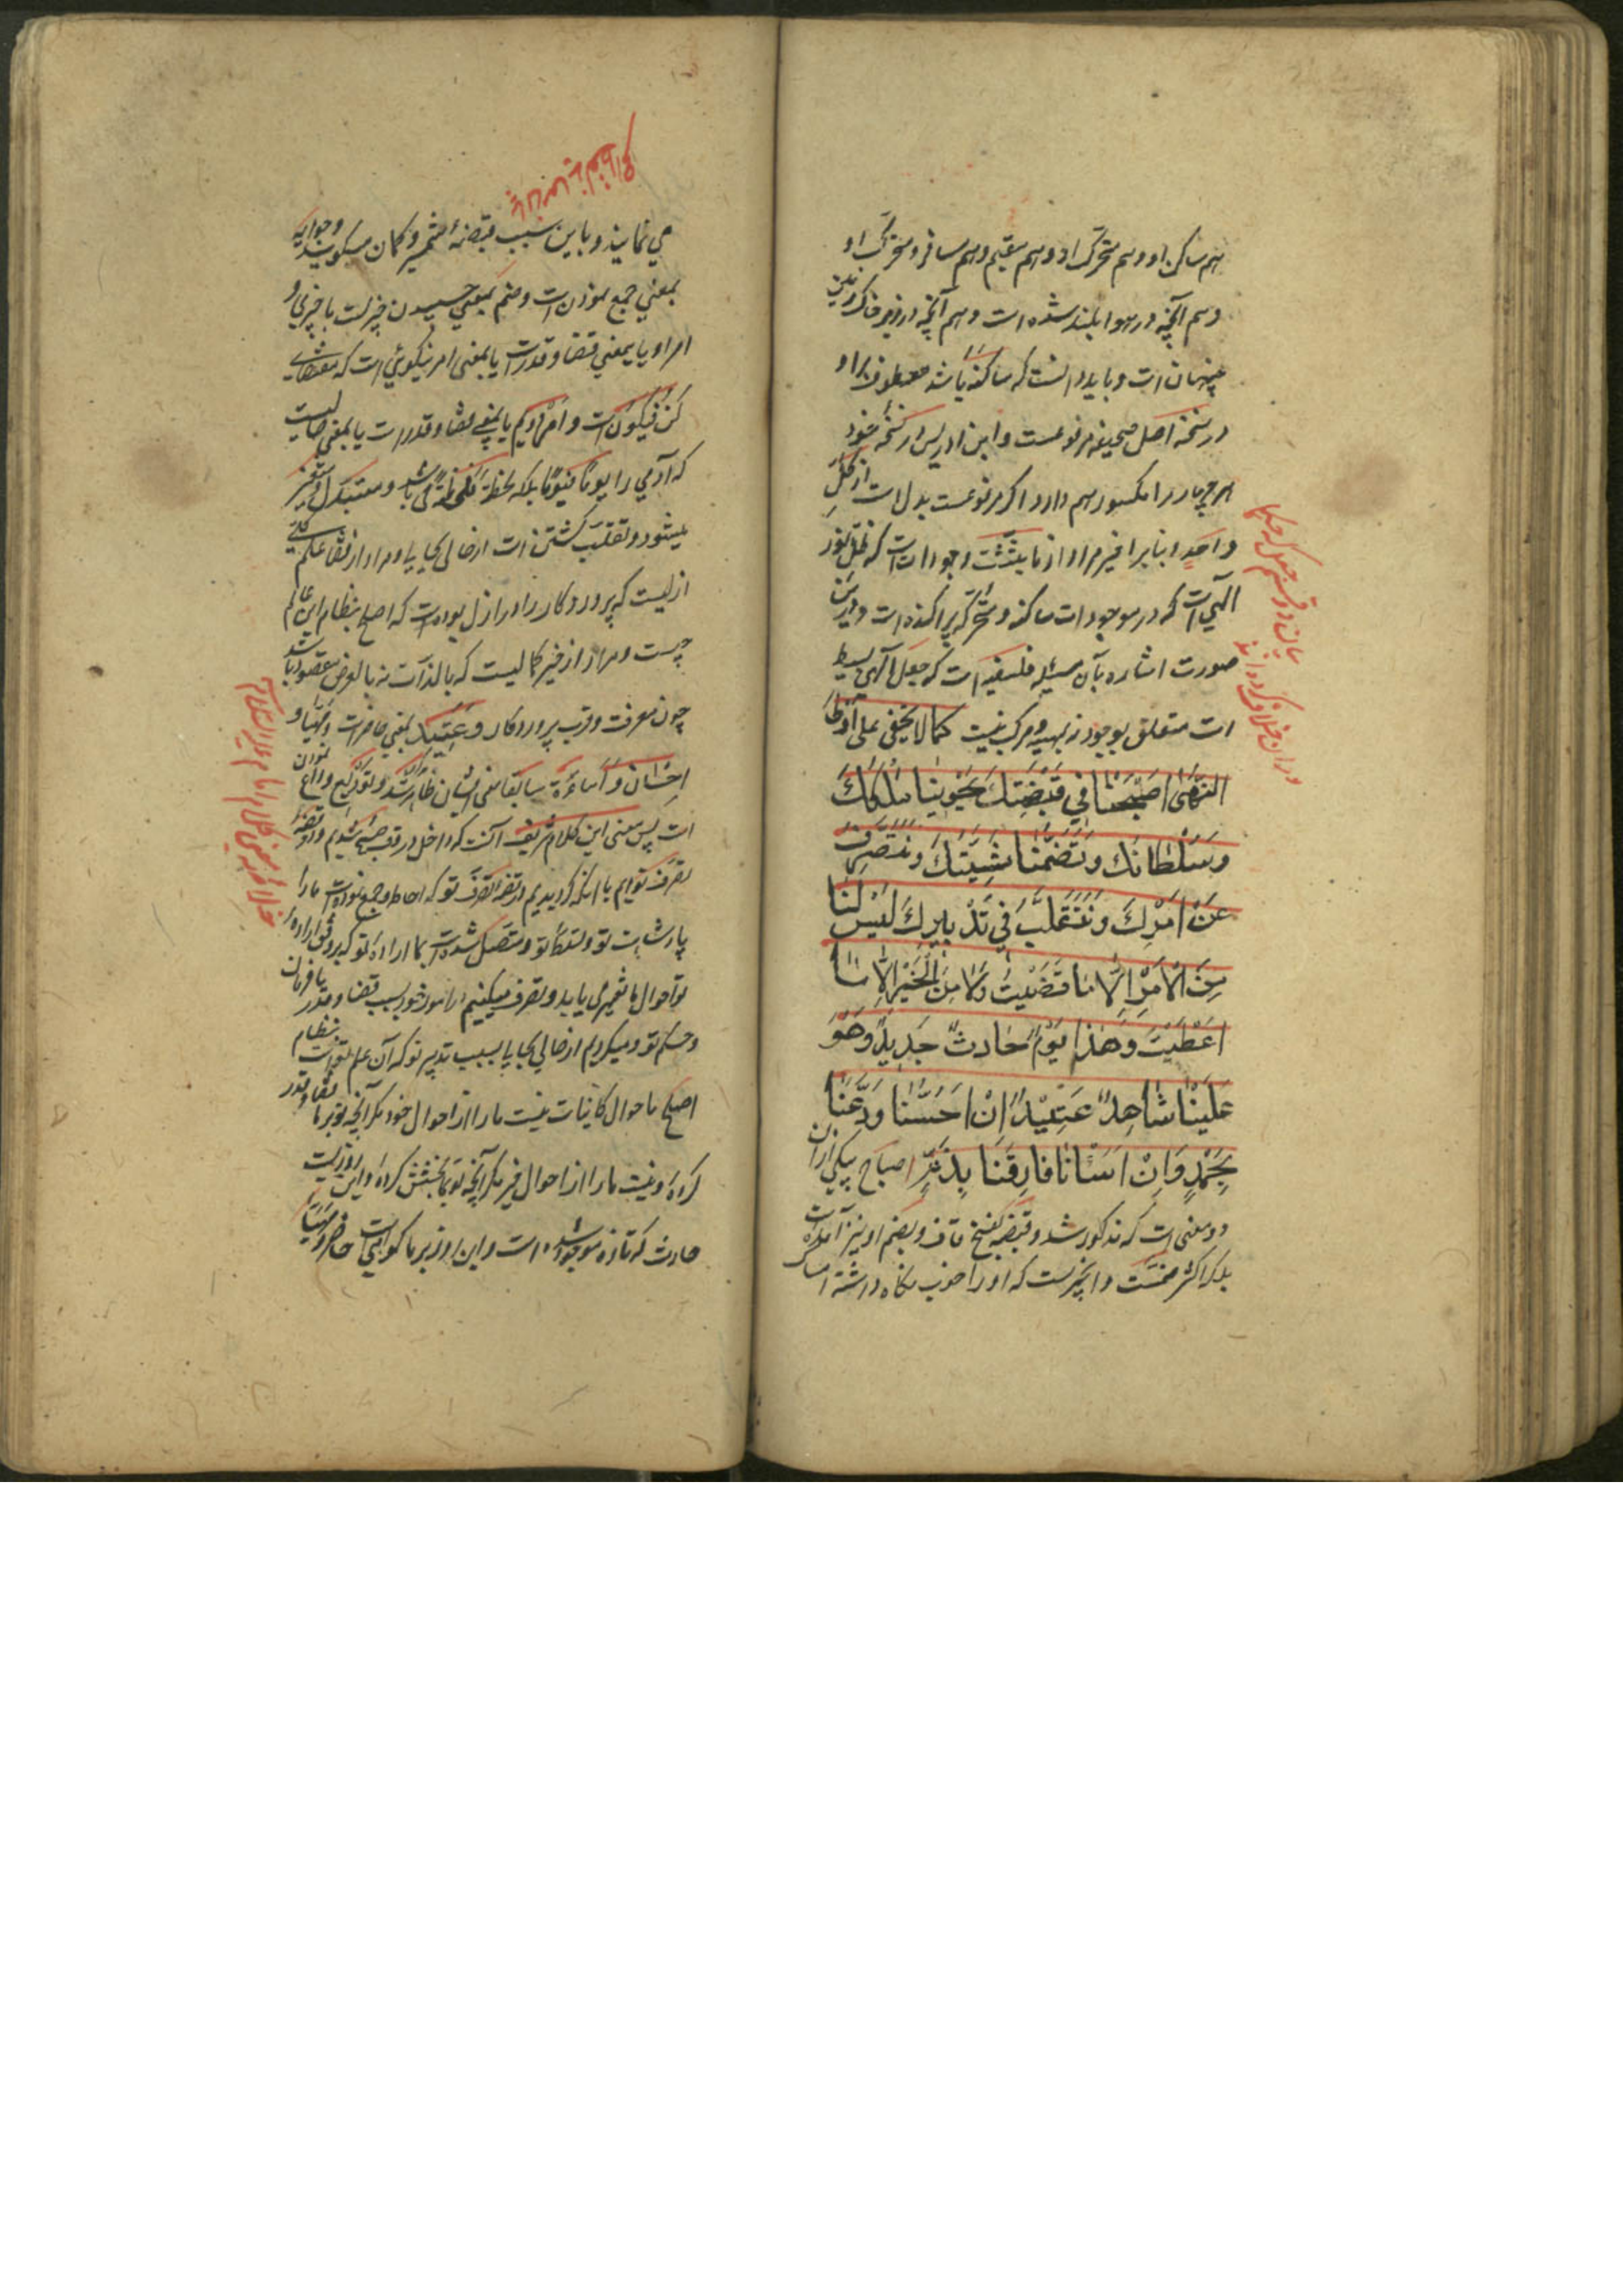 هم ساکن او و هم متحرک او و هم مقیم و هم مسافر و متحرک او
و هم آنچه در هوا بلند شده است و هم آنچه در زیر خاک زمین
پنهان است و باید دانست که ساکنه باشد معطوف براو
در نسخه اصل صحیفه مرفوعست و ابن ادریس در نسخه خود
هر چهار را مکسور هم دارد اگر مرفوعست بدل است از کل
واحد و بنابر اخیر مراد از ما بثثت وجودات است که ظل نور
الهی است که در موجودات ساکنه و متحرکه پراکنده است و درین
صورت اشاره بآن مسئله فلسفیه است که جعل الهی بسیط
است متعلق بوجود نه بهیه و مرکب نیست کما لا یخفی علی اولی
النهی اَصْبَحْنا فی قَبْضَتِكَ یَحْوینا مُلْكُكَ
وَسُلْطانُكَ وَتَضُمُّنا مَشِیَّتُكَ وَنَتَصَرَّفُ
عَنْ اَمْرِكَ وَنَتَقَلَّبُ فی تَدْبیرِكَ لَیْسَ لَنا
مِنَ الْاَمْرِ اِلّا ما قَضَیْتَ وَلا مِنَ الْخَیْرِ اِلّا ما
اَعْطَیْتَ وَهٰذا یَوْمٌ حادِثٌ جَدیدٌ وَهُوَ
عَلَیْنا شاهِدٌ عَتیدٌ اِنْ اَحْسَنّا وَدَّعَنا
بِحَمْدٍ وَاِنْ اَسَأْنا فارَقَنا بِذَمٍّ اصباح بیکی از آن
دو معنی است که مذکور شد و قبضه بفتح قاف و بضم او نیز آمده است
بلکه اکثر ضمست و آنچیزیست که او را خوب نگاه داشته امساک
می نمایند و باین سبب قبضه شمشیر و کمان میگویند و حوایه
بمعنی جمع نمودن است و ضم بمعنی چسپیدن چیزیست با چیزی و
امر او یا بمعنی قضا و قدرست یا بمعنی امر نیکوئی است که مقتضای
کُنْ فَیَکُونُ است و امر دویم یا بمعنی قضا و قدر است یا بمعنی حالیست
که آدمی را یوما فیوما بلکه لحظة فلحظة می باشد و متبدل و متغیر
میشود و تقلب گشتن است از حالی بحالی و مراد از قضا علم
ازلیست که پروردکار را در ازل بوده است که اصلح بنظام این عالم
چیست و مراد از خیر کمالیست که بالذات نه بالعرض مقصود باشد
چون معرفت و قرب پروردکار و عَتید بمعنی حاضرست و مهیا و
احسان و اساءة سابقا معنی ایشان ظاهر شد و تودیع وداع نمودن
است پس معنی این کلام شریف آنست که داخل در وقت صبح شدیم و در قبضه
تصرف توایم یا آنکه کردیدیم در قبضه تصرف تو که احاطه و جمع نموده است ما را
پادشاهیت تو و تسلط تو و متصل شده است بما اراده تو که بر وفق اراده
تو احوال ما تغییر می یابد و تصرف میکنیم در امور خود بسبب قضا و قدر یا فرمان
و حکم تو و میکردیم از حالی بحالی بسبب تدبیر تو که آن علم تو است بنظام
اصلح باحوال کاینات نیست ما را از احوال خود مکر آنچه تو بر ما قضا و قدر
کرده و نیست ما را از احوال خیر مکر آنچه تو بما بخشش کرده و این روزیست
حادث که تازه موجود شده است و این روز بر ما کواهیست حاضر و مهیا